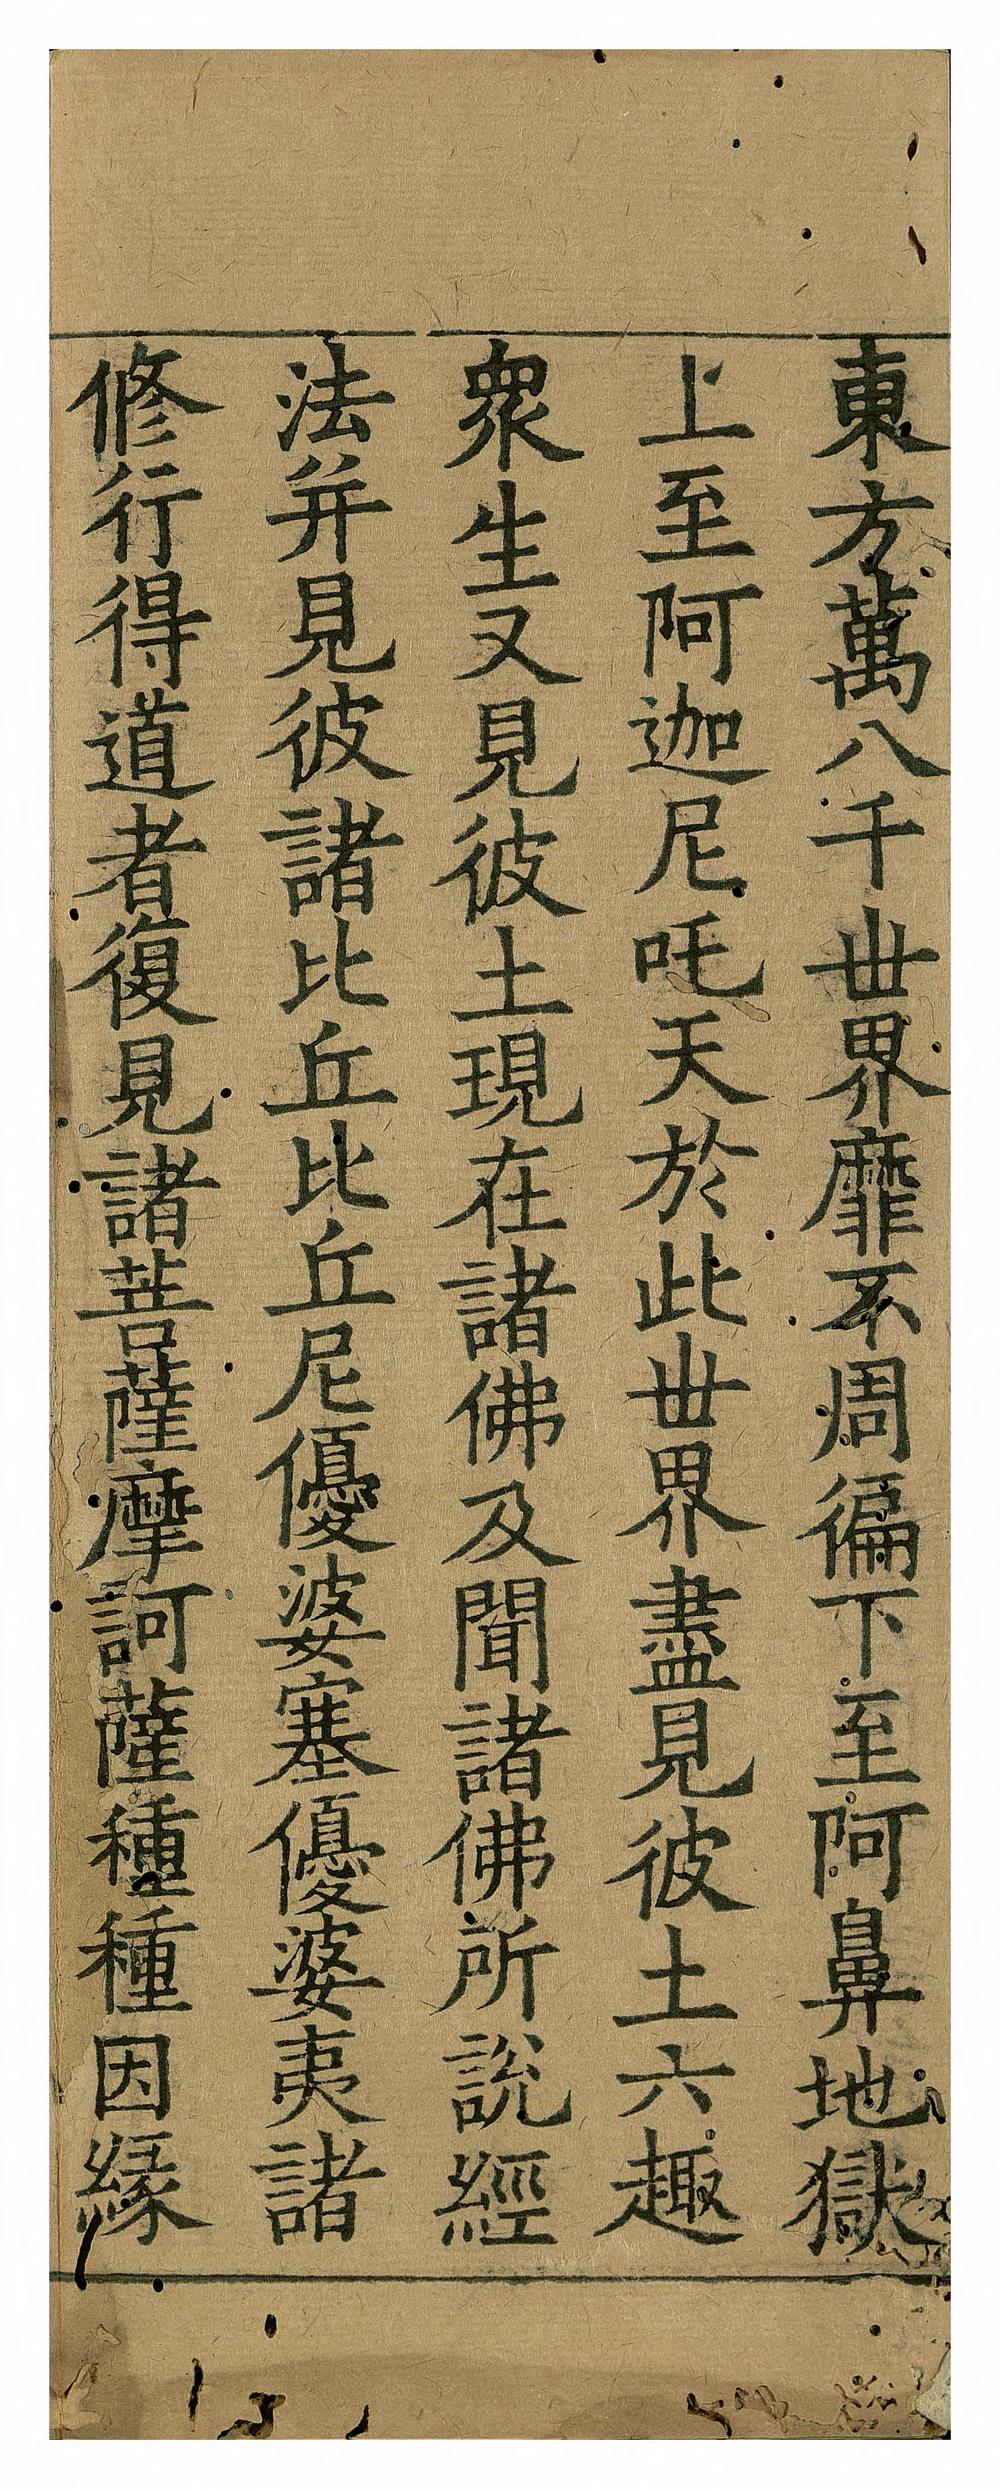 東方萬八千世界靡不周徧下至阿鼻地獄
上至阿迦尼吒天於此世界盡見彼土六趣
衆生又見彼土現在諸佛及聞諸佛所說經
法并見彼諸比丘比丘尼優婆塞優婆夷諸
修行得道者復見諸菩薩摩訶薩種種因緣